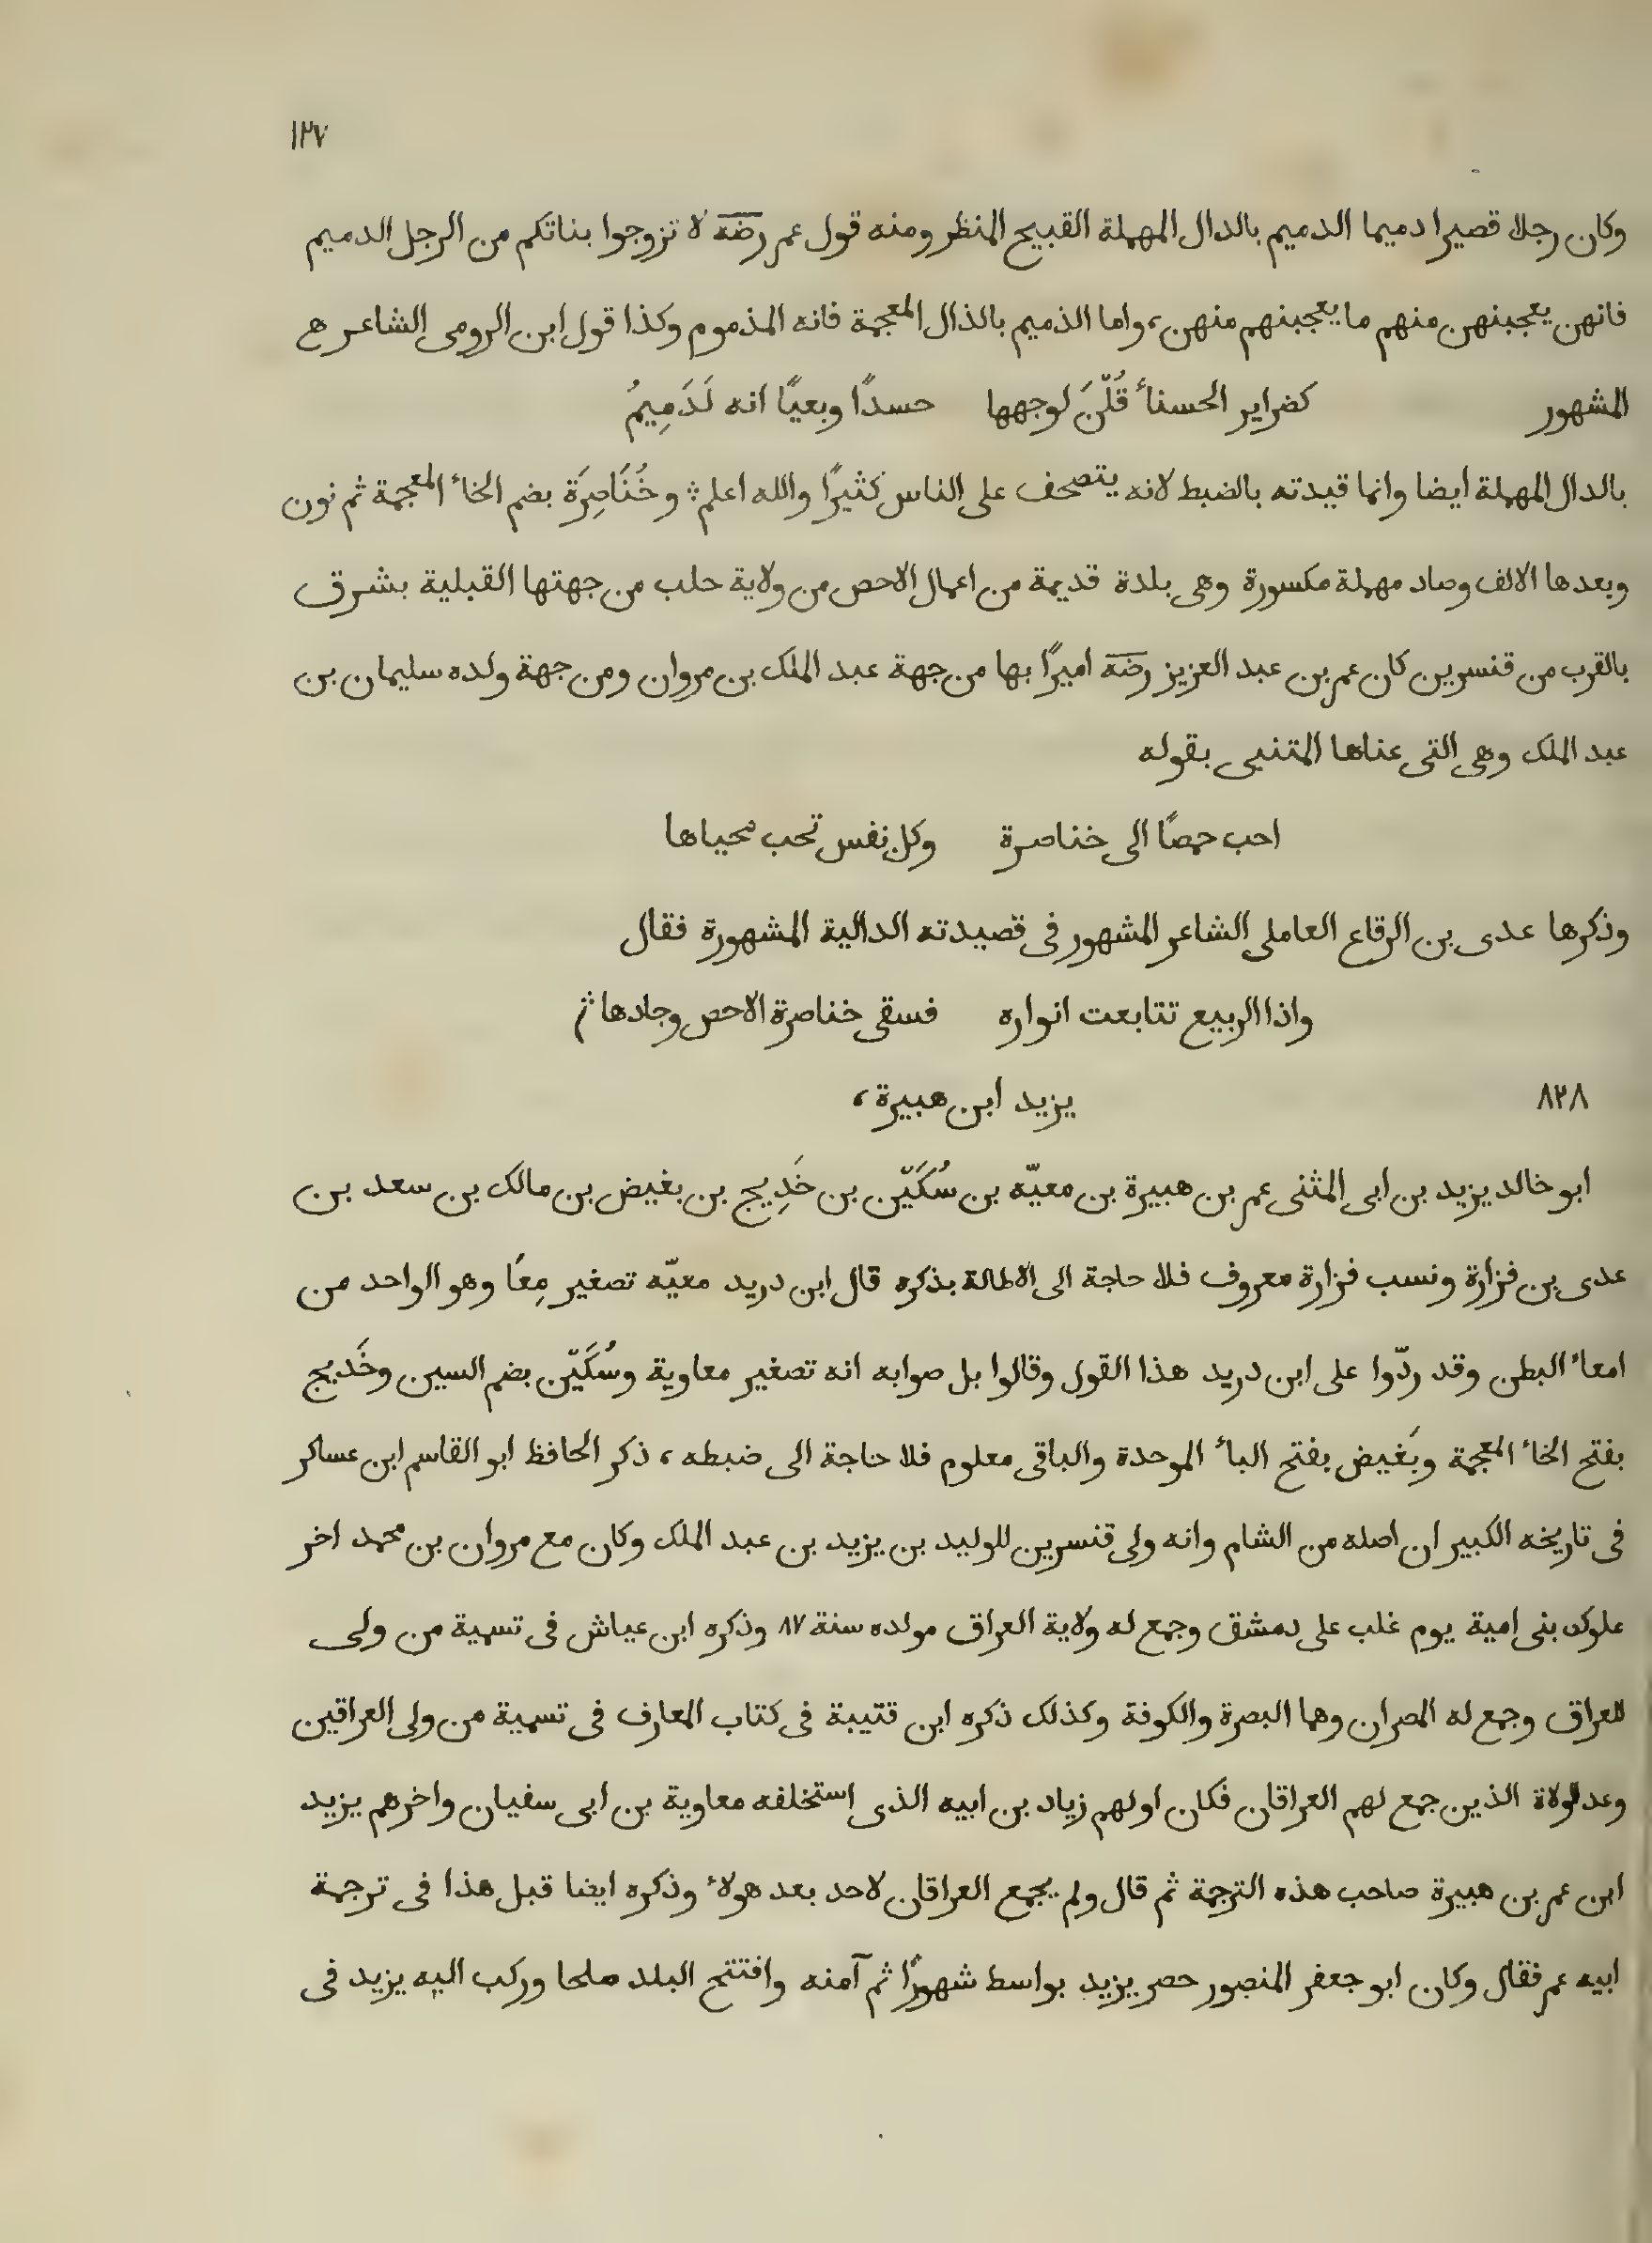 ١٢٧
وكان رجلا قصيرا دميما الدميم بالدال المهملة القبيح المنظر ومنه قول عمر رضه لا تزوجوا بناتكم من الرجل الدميم
فانهن يعجبنهن منهم ما يعجبنهم منهن، واما الذميم بالذال المعجمة فانه المذموم وكذا قول ابن الرومى الشاعر ع
المشهور كضراير الحسنأ قُلّنَ لوجهها حسدًا وبعيًا انه لَدَمِيمُ
بالدال المهملة ايضا وانما قيدته بالضبط لانه يتصحف على الناس كثيرًا والله اعلم ؞ وخُنَاصِرَة بضم الخأ المعجمة ثم نون
وبعدها الالف وصاد مهملة مكسورة وهى بلدة قديمة من اعمال الاحص من ولاية حلب من جهتها القبلية بشرق
بالقرب من قنسرين كان عمر بن عبد العزيز رضه اميرًا بها من جهة عبد الملك بن مروان ومن جهة ولده سليمان بن
عبد الملك وهى التى عناها المتنبى بقوله
احب حمصًا الى خناصرة وكل نفس تحب محياها
وذكرها عدى بن الرقاع العاملى الشاعر المشهور فى قصيدته الدالية المشهورة فقال
واذا الربيع تتابعت انواره فسقى خناصرة الاحص وجادها ؞
٨٢٨ يزيد ابن هبيرة،
ابو خالد يزيد بن ابى المثنى عمر بن هبيرة بن معيّه بن سُكَيّن بن خَدِيج بن بغيض بن مالك بن سعد بن
عدى بن فزارة ونسب فزارة معروف فلا حاجة الى الاطالة بذكره قال ابن دريد معيّه تصغير مِعًا وهو الواحد من
امعأ البطن وقد ردّوا على ابن دريد هذا القول وقالوا بل صوابه انه تصغير معاوية وسُكَيّن بضم السين وخَديج
بفتح الخأ المعجمة وبَغيض بفتح البأ الموحدة والباقى معلوم فلا حاجة الى ضبطه، ذكر الحافظ ابو القاسم ابن عساكر
فى تاريخه الكبير ان اصله من الشام وانه ولى قنسرين للوليد بن يزيد بن عبد الملك وكان مع مروان بن محمد اخر
ملوك بنى امية يوم غلب على دمشق وجمع له ولاية العراق مولده سنة ٨٧ وذكره ابن عياش فى تسمية من ولى
العراق وجمع له المصران وهما البصرة والكوفة وكذلك ذكره ابن قتيبة فى كتاب المعارف فى تسمية من ولى العراقين
وعد الولاة الذين جمع لهم العراقان فكان اولهم زياد بن ابيه الذى استخلفه معاوية بن ابى سفيان واخرهم يزيد
ابن عمر بن هبيرة صاحب هذه الترجمة ثم قال ولم يجمع العراقان لاحد بعد هولأ وذكره ايضا قبل هذا فى ترجمة
ابيه عمر فقال وكان ابو جعفر المنصور حصر يزيد بواسط شهورًا ثم آمنه وافتتح البلد صلحا وركب اليه يزيد فى